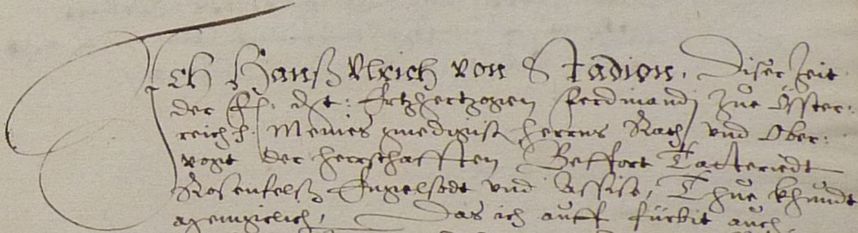 Ich Hanß Ulrich von Stadion, diser Zeit
der F. dt: Ertzhertzogen Ferdinandj zue Össter:
reich [et]c. Meines gnedigist herrns Rath, und Ober:
vogt der herrschafften Beffort Tatteriedt
Rosenfelß Ingelsodt und Assise, Thue khundt
das ich auff fürbit auch